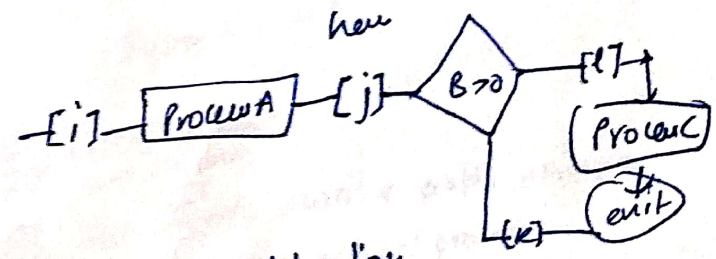 [i] Process A [j] B>0 [l]
Process C
[k] exit